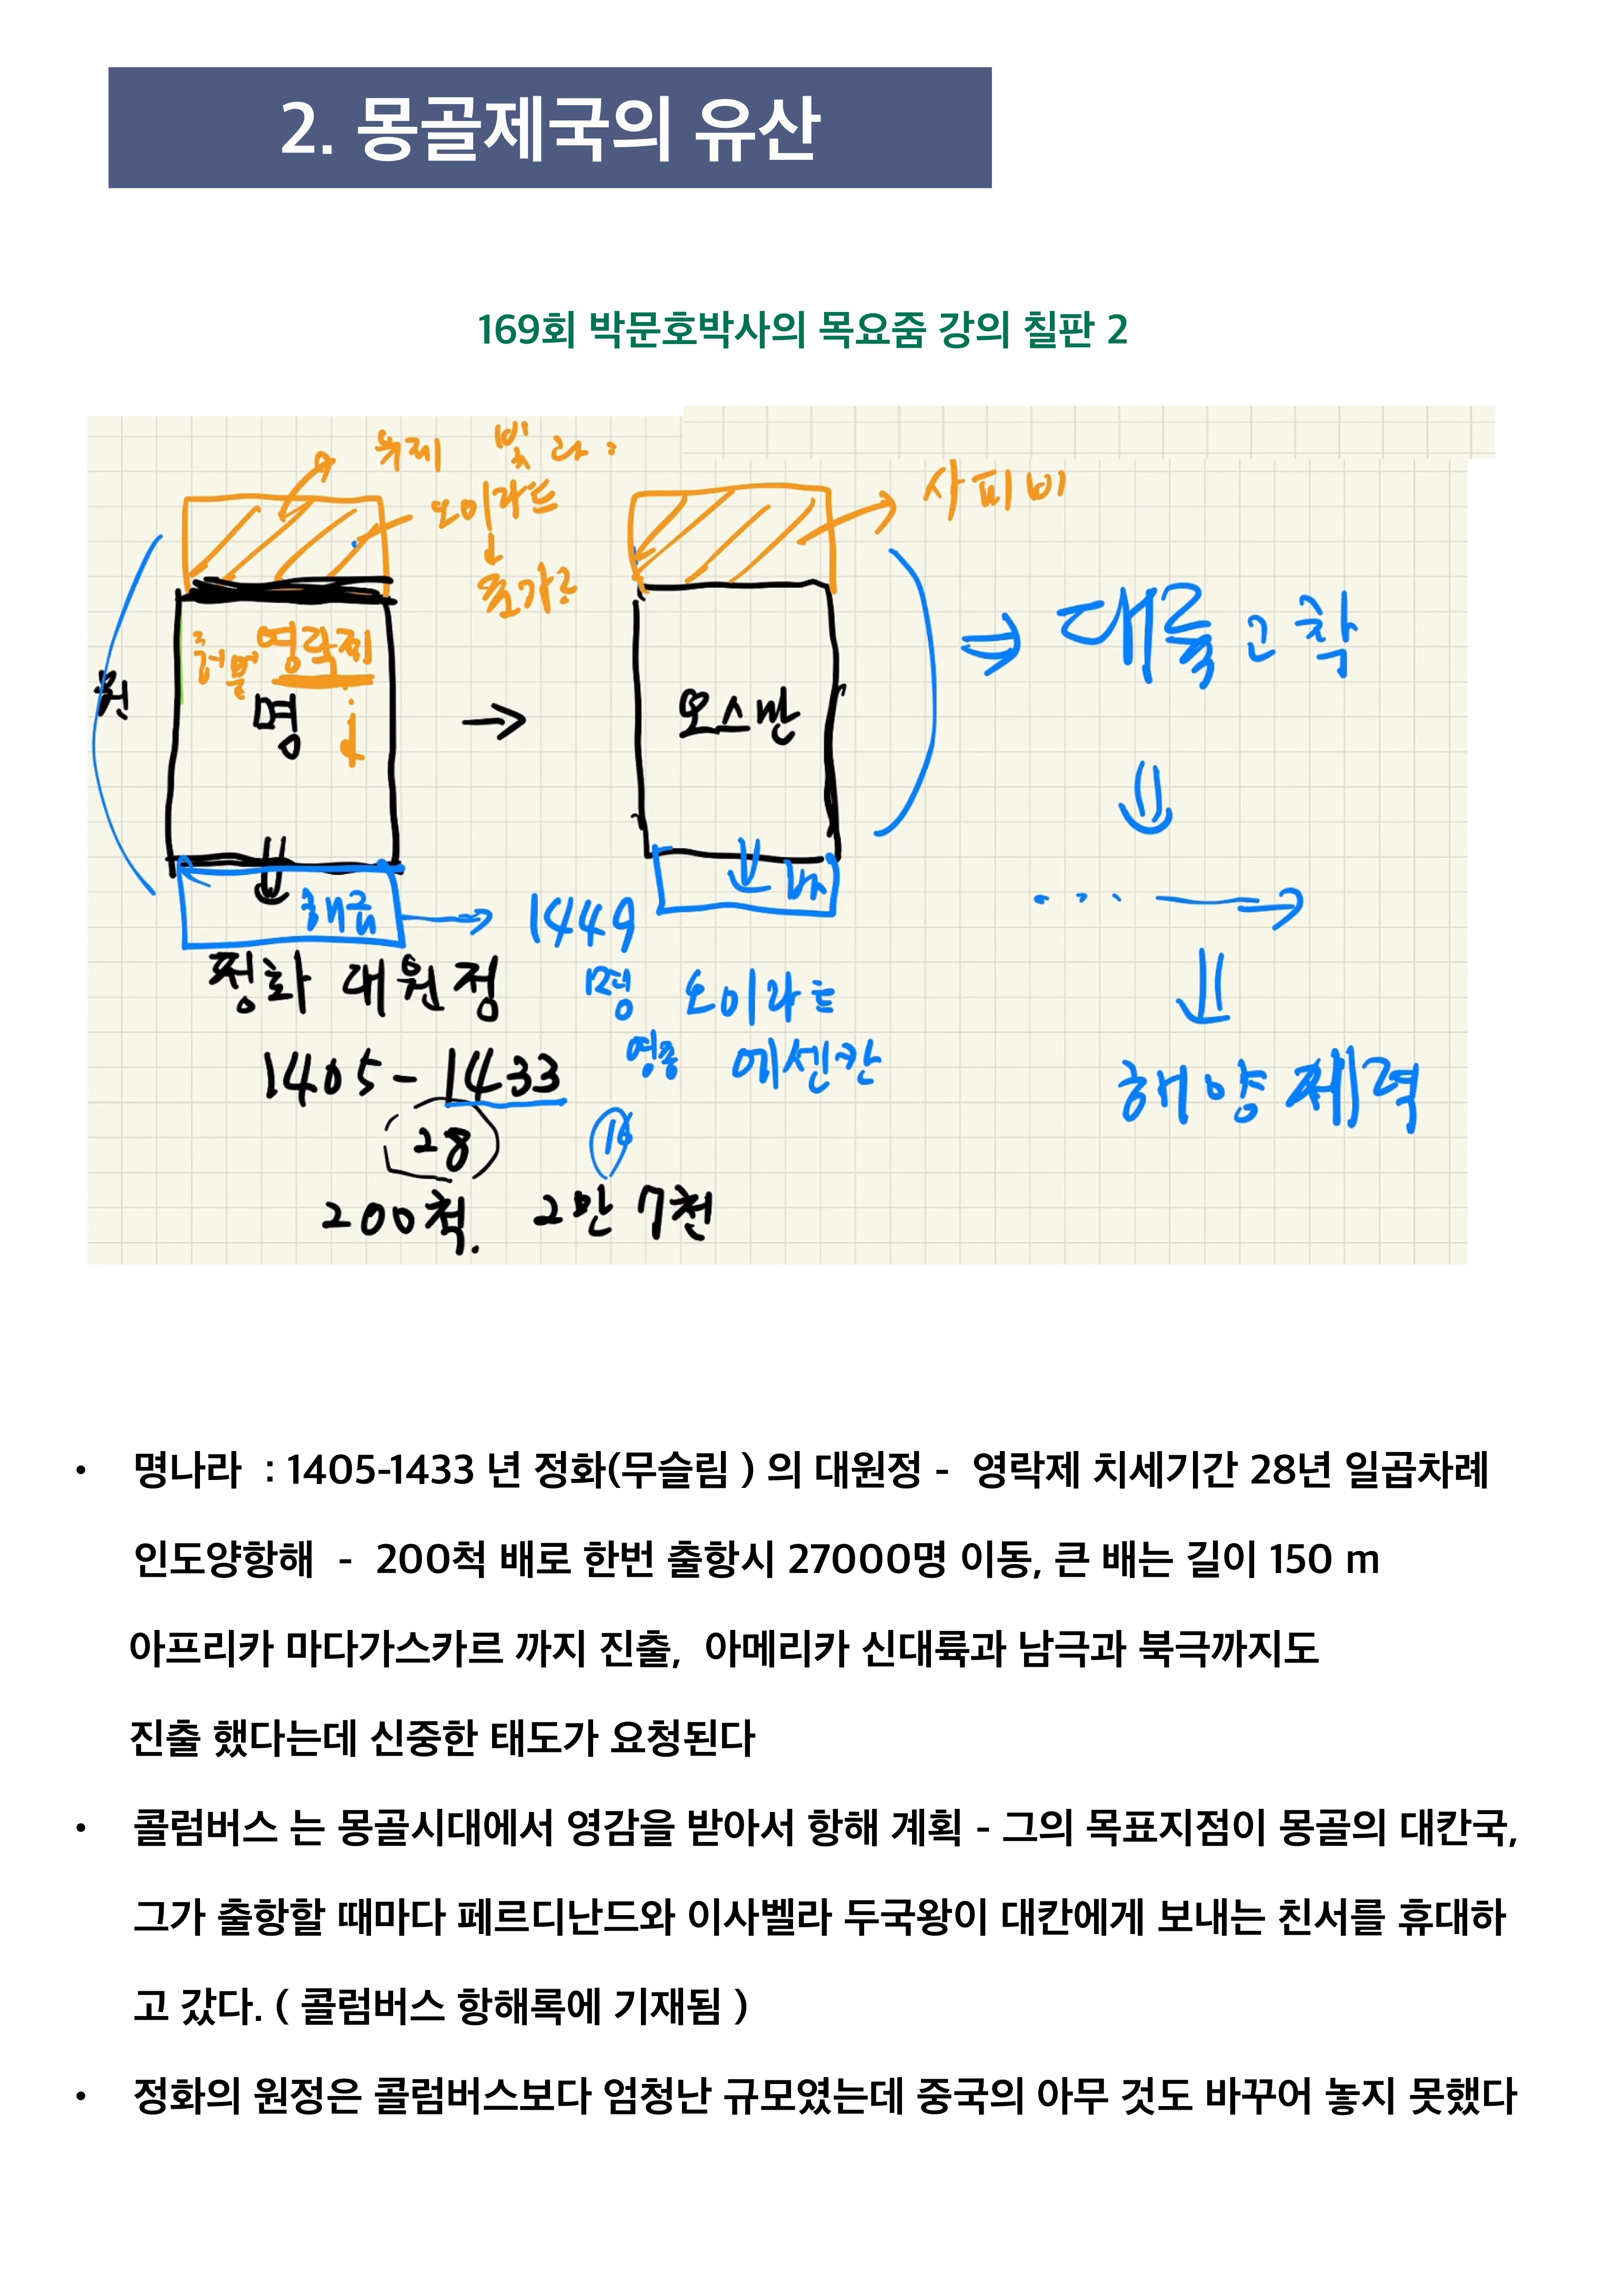 2. 몽골제국의 유산
169회 박문호박사의 목요줌 강의 칠판 2
오이라트
사피비
영락제
원
명
→
오스만
⇒ 대륙 고착
해금 → 1449
정화 대원정
명 오이라트
영종 에센칸
1405-1433
28
16
200척. 2만 7천
해양 세력
• 명나라 : 1405-1433 년 정화(무슬림 ) 의 대원정 - 영락제 치세기간 28년 일곱차례
인도양항해 - 200척 배로 한번 출항시 27000명 이동, 큰 배는 길이 150 m
아프리카 마다가스카르 까지 진출, 아메리카 신대륙과 남극과 북극까지도
진출 했다는데 신중한 태도가 요청된다
• 콜럼버스 는 몽골시대에서 영감을 받아서 항해 계획 - 그의 목표지점이 몽골의 대칸국,
그가 출항할 때마다 페르디난드와 이사벨라 두국왕이 대칸에게 보내는 친서를 휴대하
고 갔다. ( 콜럼버스 항해록에 기재됨 )
• 정화의 원정은 콜럼버스보다 엄청난 규모였는데 중국의 아무 것도 바꾸어 놓지 못했다